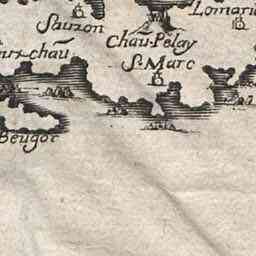 Sauzon
Lomaria
Chau.Pelay
chau
St. Marc
Beugor